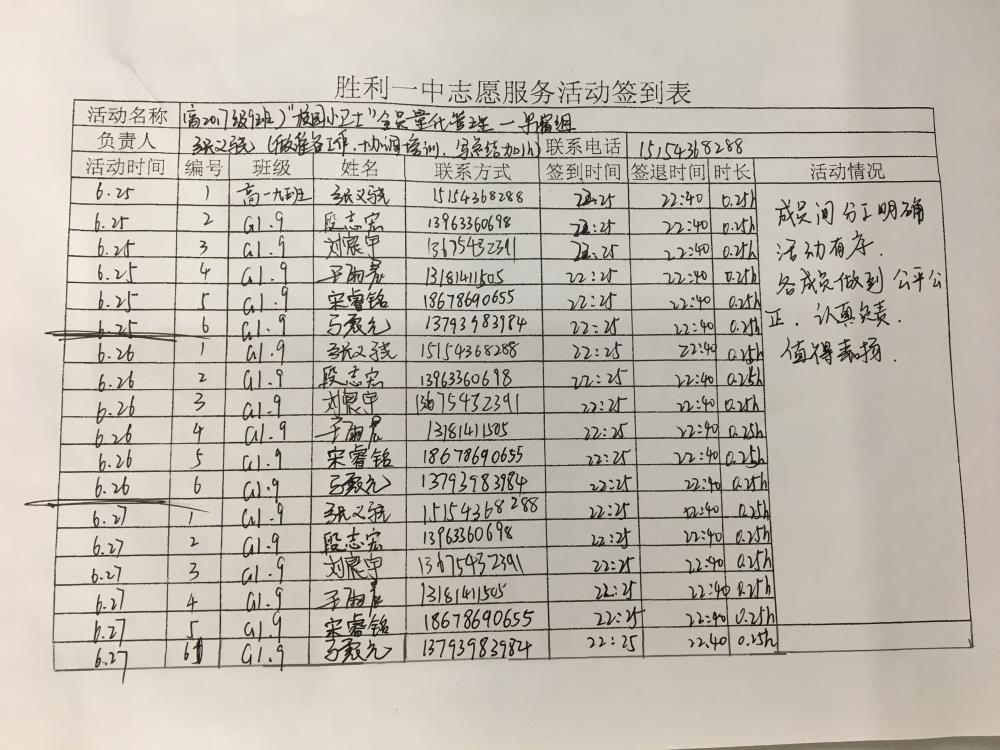 胜利一中志愿服务活动签到表
活动名称 (高2017级9班)"校园小卫士"全员量化管理一导宿组
负责人 张义骁 (做准备工作、协调培训、写总结加1h) 联系电话 15154368288
活动时间 编号 班级 姓名 联系方式 签到时间 签退时间 时长 活动情况
6.25 1 高一九班 张义骁 15154368288 22:25 22:40 0.25h
6.25 2 G1.9 段志宏 13963360698 22:25 22:40 0.25h
6.25 3 G1.9 刘宸宇 13675432391 22:25 22:40 0.25h
6.25 4 G1.9 13181411505 22:25 22:40 0.25h
6.25 5 G1.9 宋睿铭 18678690655 22:25 22:40 0.25h
6.25 6 G1.9 13793983984 22:25 22:40 0.25h
6.26 1 G1.9 张义骁 15154368288 22:25 22:40 0.25h
6.26 2 G1.9 段志宏 13963360698 22:25 22:40 0.25h
6.26 3 G1.9 刘宸宇 13675432391 22:25 22:40 0.25h
6.26 4 G1.9 13181411505 22:25 22:40 0.25h
6.26 5 G1.9 宋睿铭 18678690655 22:25 22:40 0.25h
6.26 6 G1.9 13793983984 22:25 22:40 0.25h
6.27 1 G1.9 张义骁 15154368288 22:25 22:40 0.25h
6.27 2 G1.9 段志宏 13963360698 22:25 22:40 0.25h
6.27 3 G1.9 刘宸宇 13675432391 22:25 22:40 0.25h
6.27 4 G1.9 13181411505 22:25 22:40 0.25h
6.27 5 G1.9 宋睿铭 18678690655 22:25 22:40 0.25h
6.27 6 G1.9 13793983984 22:25 22:40 0.25h
成员间分工明确
活动有序.
各成员做到公平公
正、认真负责.
值得表扬.